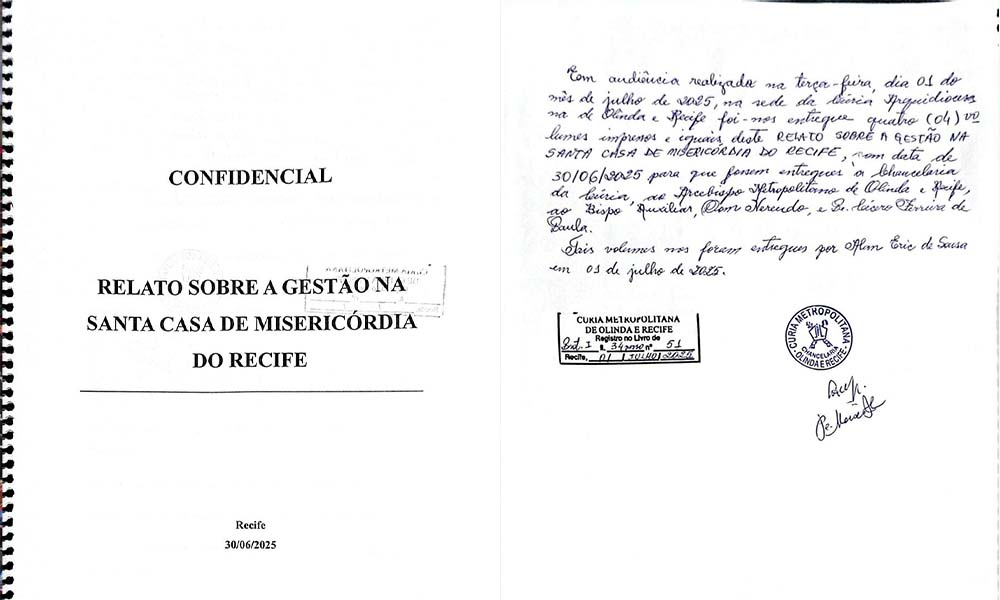 CONFIDENCIAL
RELATO SOBRE A GESTÃO NA
SANTA CASA DE MISERICÓRDIA
DO RECIFE
Recife
30/06/2025
Em audiência realizada na terça-feira, dia 01 do
mês de julho de 2025, na sede da Cúria Arquidiocesa
na de Olinda e Recife foi-nos entregue quatro (04) vo
lumes impressos e iguais deste RELATO SOBRE A GESTÃO NA
SANTA CASA DE MISERICÓRDIA DO RECIFE, com data de
30/06/2025 para que fossem entregues à Chancelaria
da Cúria, ao Arcebispo Metropolitano de Olinda e Recife,
ao Bispo Auxiliar, Dom Nereudo, e Pe. Cícero Ferreira de
Paula.
Tais volumes nos foram entregues por Alan Eric de Sousa
em 01 de julho de 2025.
CURIA METROPOLITANA
DE OLINDA E RECIFE
Registro no Livro de
Prot. I fl. 34 nº 51
Recife, 01 / JULHO / 2025
CURIA METROPOLITANA
CHANCELARIA
OLINDA E RECIFE